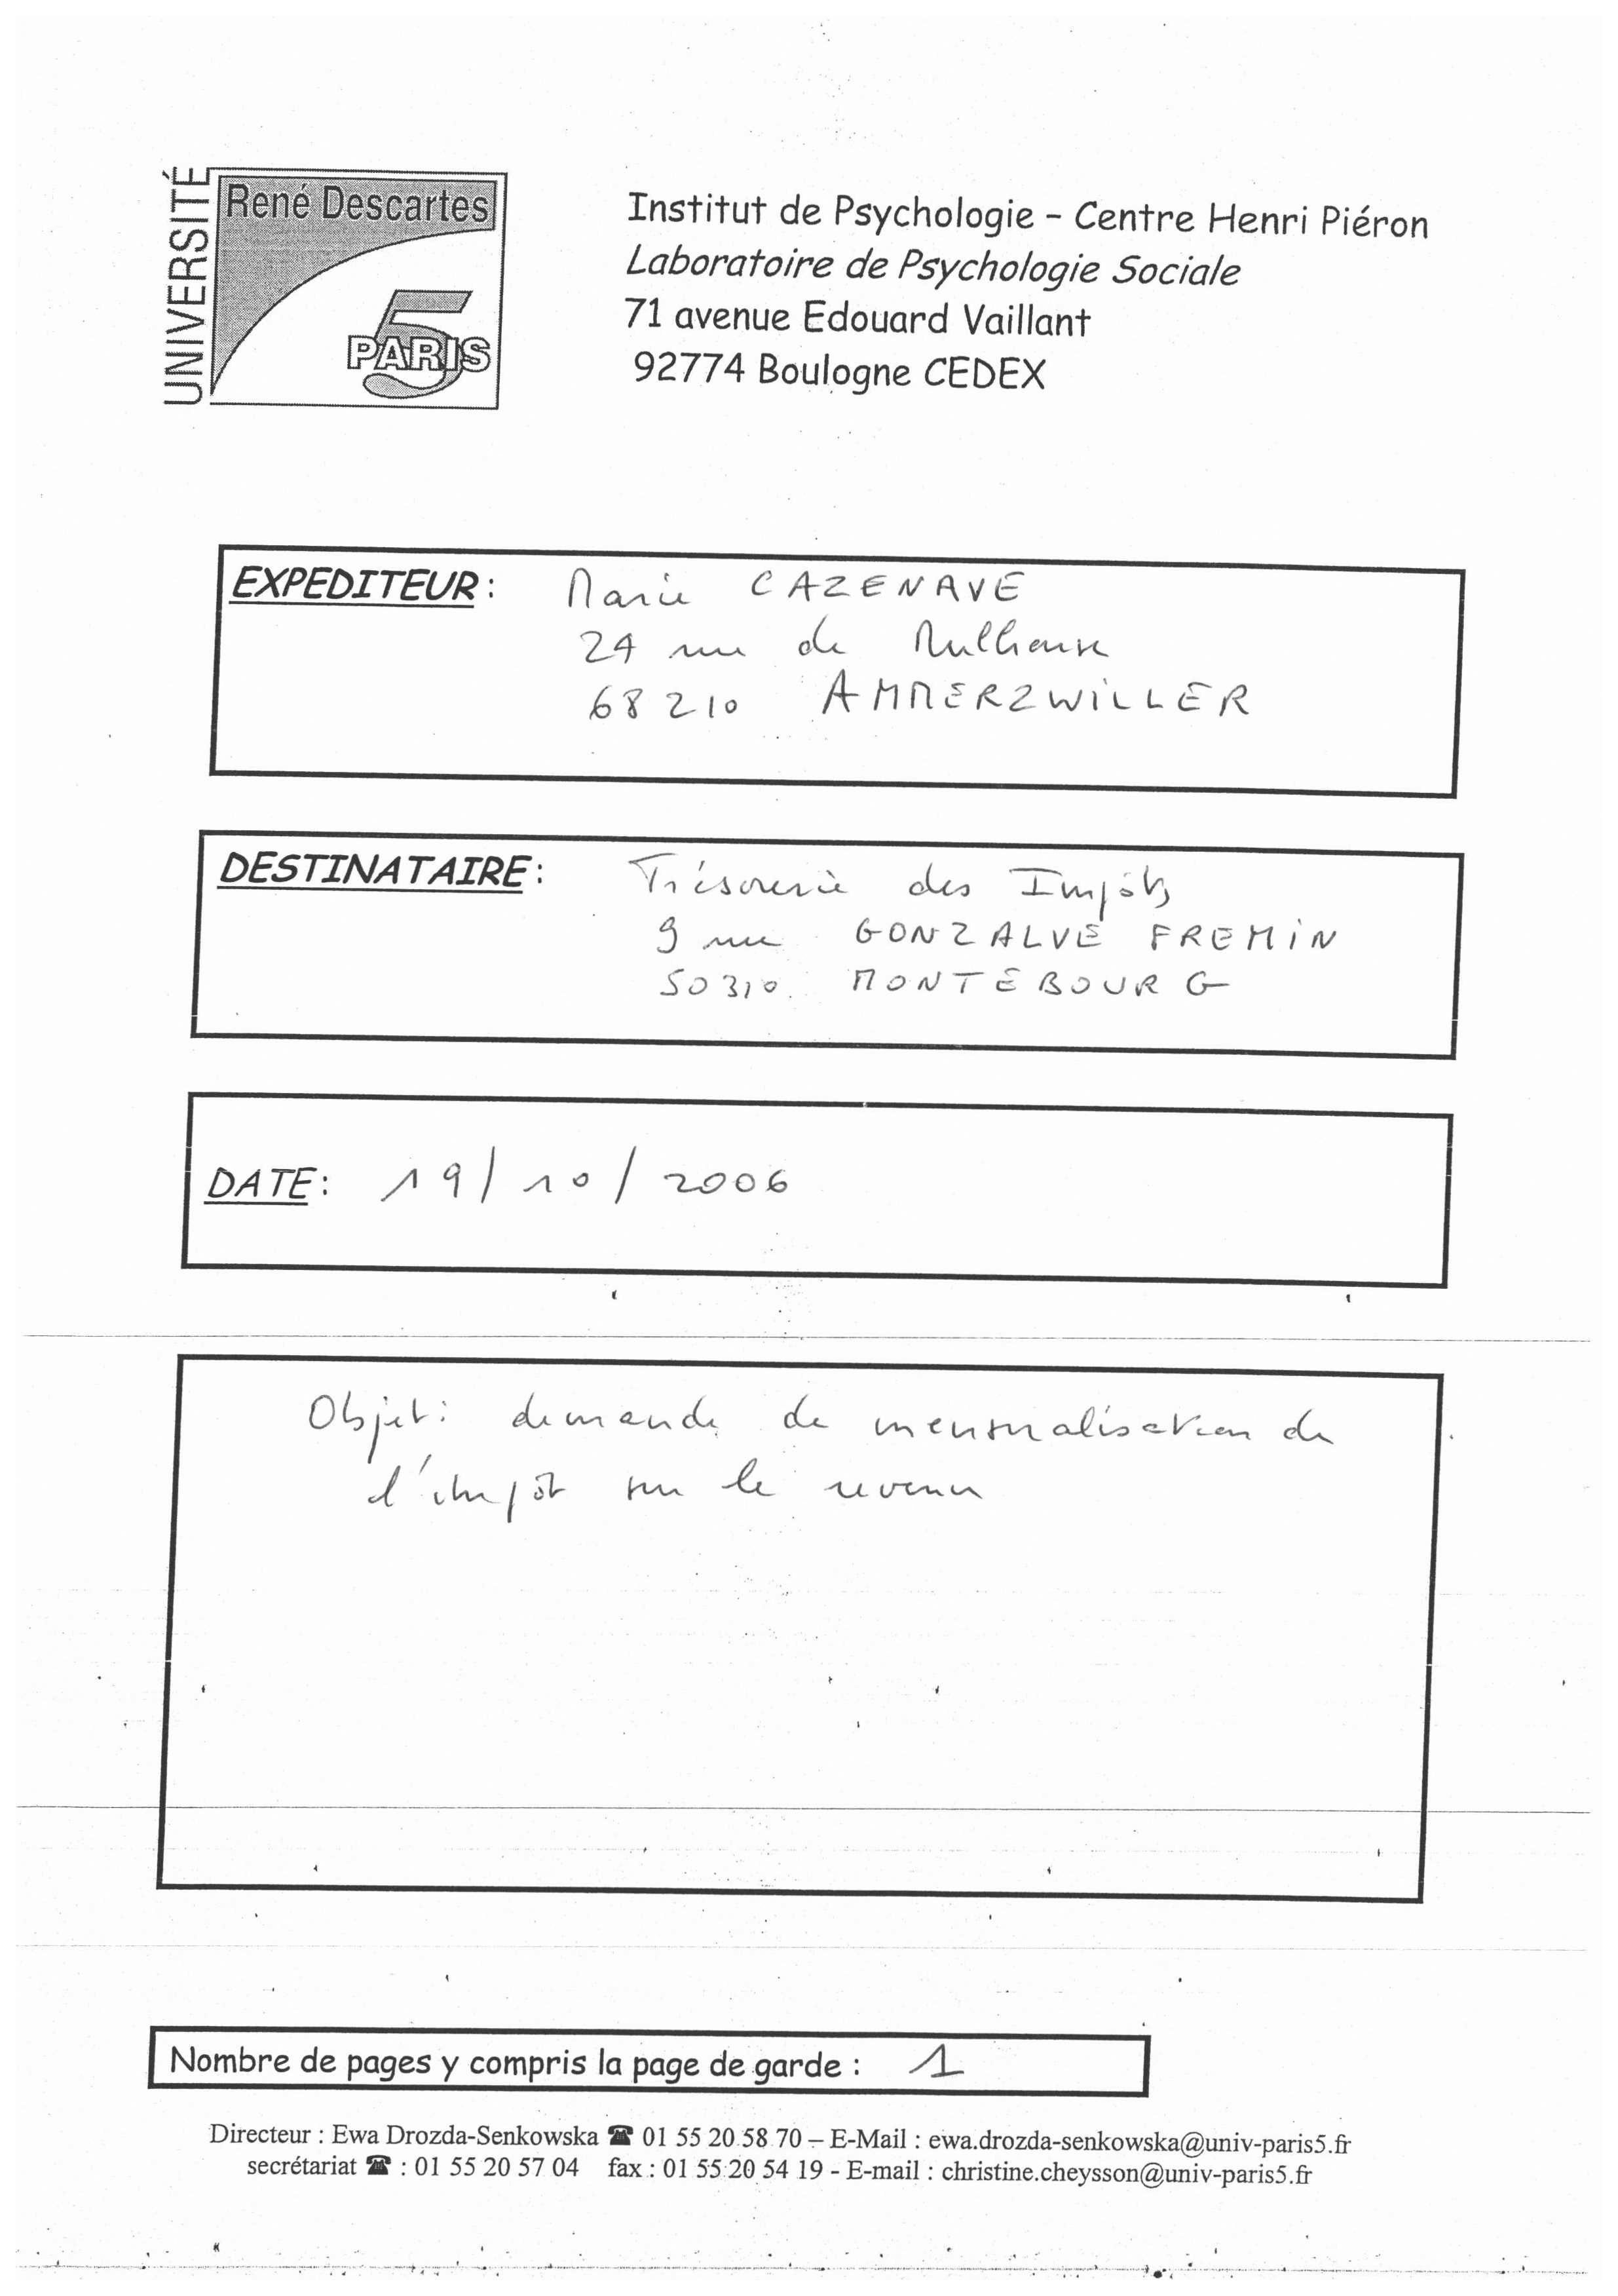 UNIVERSITÉ
René Descartes
5
PARIS
Institut de Psychologie - Centre Henri Piéron
Laboratoire de Psychologie Sociale
71 avenue Edouard Vaillant
92774 Boulogne CEDEX
EXPEDITEUR: Marie CAZENAVE
24 rue de Mulhouse
68210 AMMERZWILLER
DESTINATAIRE: Trésorerie des Impôts
9 rue GONZALVE FREMIN
50310 MONTEBOURG
DATE: 19/10/2006
Objet: demande de mensualisation de
l'impôt sur le revenu
Nombre de pages y compris la page de garde : 1
Directeur : Ewa Drozda-Senkowska ☎ 01 55 20 58 70 – E-Mail : ewa.drozda-senkowska@univ-paris5.fr
secrétariat ☎ : 01 55 20 57 04 fax : 01 55 20 54 19 - E-mail : christine.cheysson@univ-paris5.fr